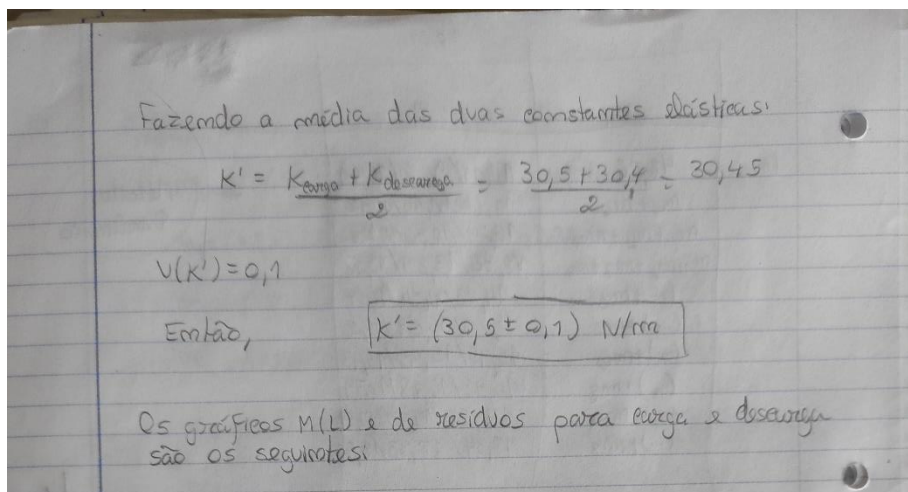 Fazendo a média das duas constantes elásticas:
K' = (Kcarga + Kdescarga)/2 = (30,5 + 30,4)/2 = 30,45
U(K') = 0,1
Então, K' = (30,5 ± 0,1) N/m
Os gráficos M(L) e de resíduos para carga e descarga
são os seguintes: